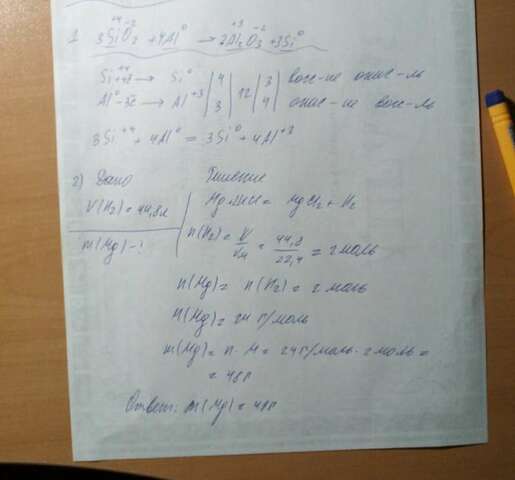 +4 -2 0 +3 -2 0
1. 3SiO2 + 4Al → 2Al2O3 + 3Si
Si+4 +4e → Si0 | 4 | 12 | 3 | восс-ие окис-ль
Al0 - 3e → Al+3 | 3 | | 4 | окис-ие восс-ль
3Si+4 + 4Al0 = 3Si0 + 4Al+3
2) Дано Решение
V(H2) = 44,8л Mg + 2HCl = MgCl2 + H2
m(Mg) - ? n(H2) = V/Vм = 44,8/22,4 = 2 моль
n(Mg) = n(H2) = 2 моль
M(Mg) = 24 г/моль
m(Mg) = n · M = 24 г/моль · 2 моль =
= 48г
Ответ: m(Mg) = 48г